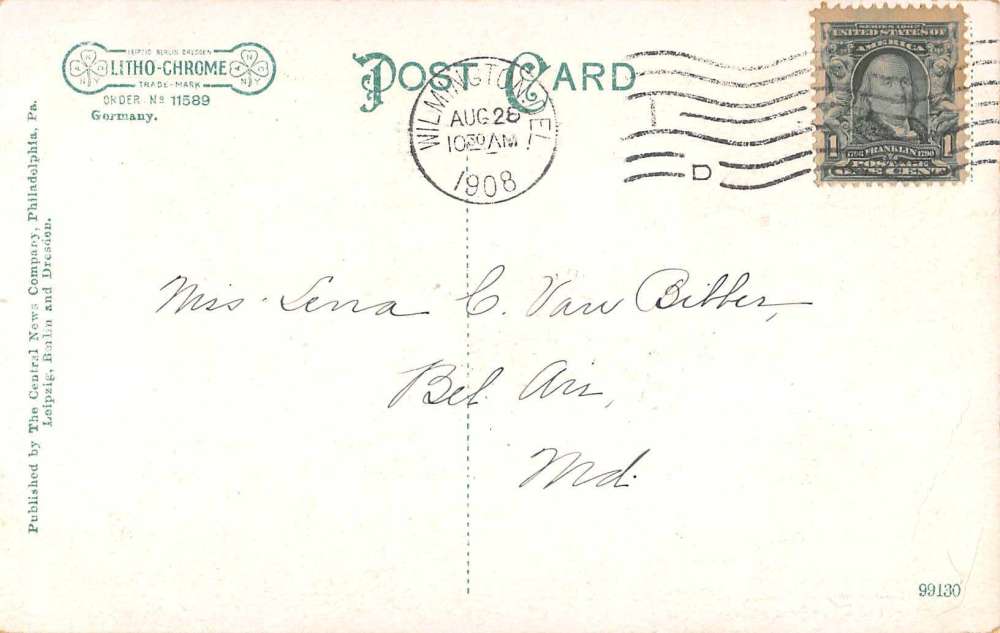 LEIPZIG BERLIN DRESDEN
LITHO-CHROME
TRADE-MARK
ORDER Nº 11589
Germany.
POST CARD
WILMINGTON, DEL.
AUG 28
10 30 AM
1908
D
SERIES 1902
UNITED STATES OF
AMERICA
1 FRANKLIN 1
POSTAGE
ONE CENT
Published by The Central News Company, Philadelphia, Pa.
Leipzig, Berlin and Dresden.
Miss Lena C. Van Bibber,
Bel Air,
Md.
99130